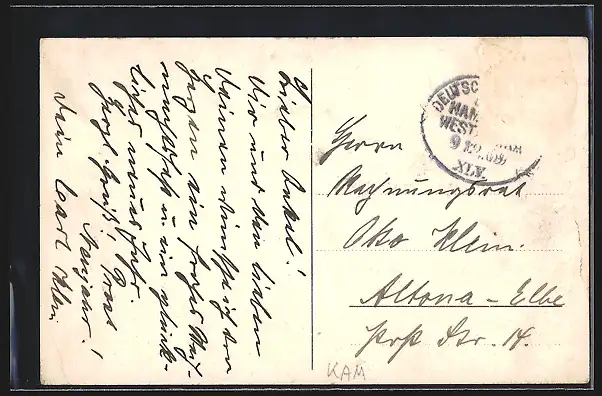 Lieber Onkel!
Dir und den lieben
Deinen wünsche ich von
Herzen ein frohes Weih-
nachtsfest u. ein glück-
liches neues Jahr.
Herzl. Gruß! Prost
Neujahr!
Dein Carl Klein
DEUTSCH
HAM
WEST
XLV.
Herrn
Rechnungsrat
Otto Klein.
Altona-Elbe
Str. 14.
KAM